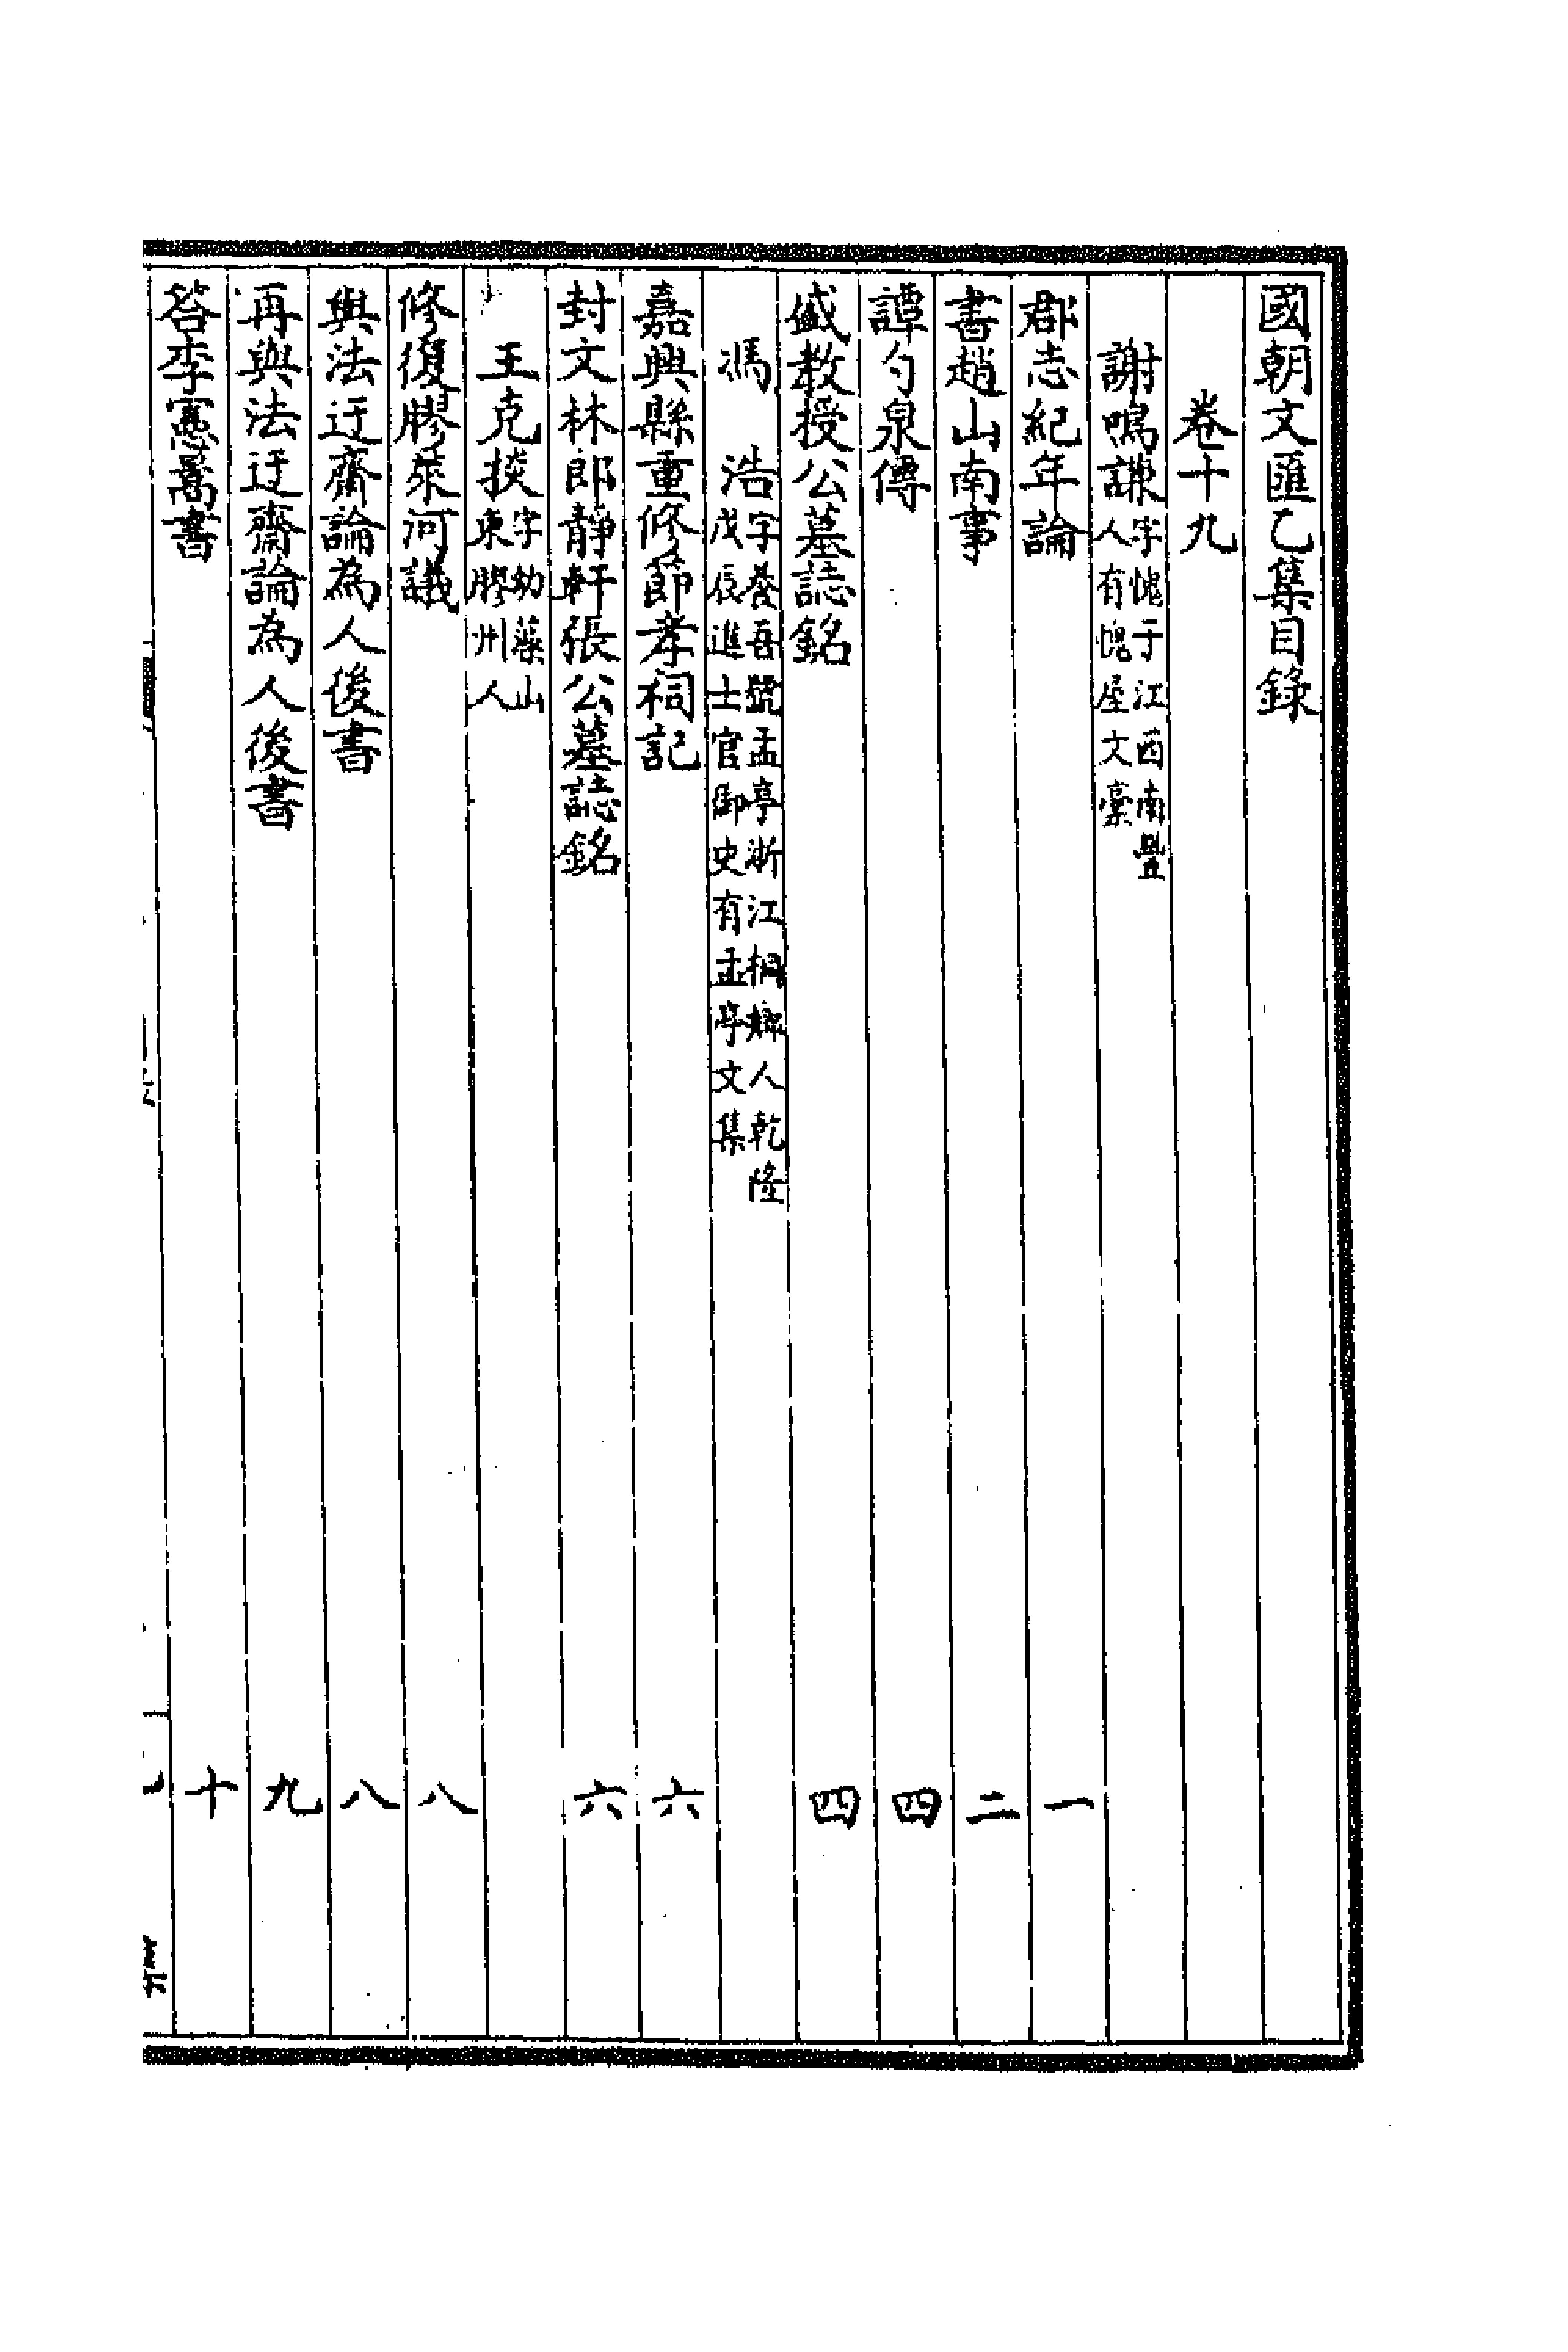 國朝文匯乙集目錄
卷十九
謝鳴謙字愧于江西南豐人有愧屋文稾
郡志紀年論 一
書趙山南事 二
譚勺泉傳 四
盛教授公墓誌銘 四
馮 浩字養吾號孟亭浙江桐鄉人乾隆戊辰進士官御史有孟亭文集
嘉興縣重修節孝祠記 六
封文林郎靜軒張公墓誌銘 六
王克掞字幼藻山東膠州人
修復膠萊河議 八
與法迂齋論為人後書 八
再與法迂齋論為人後書 九
答李憲暠書 十